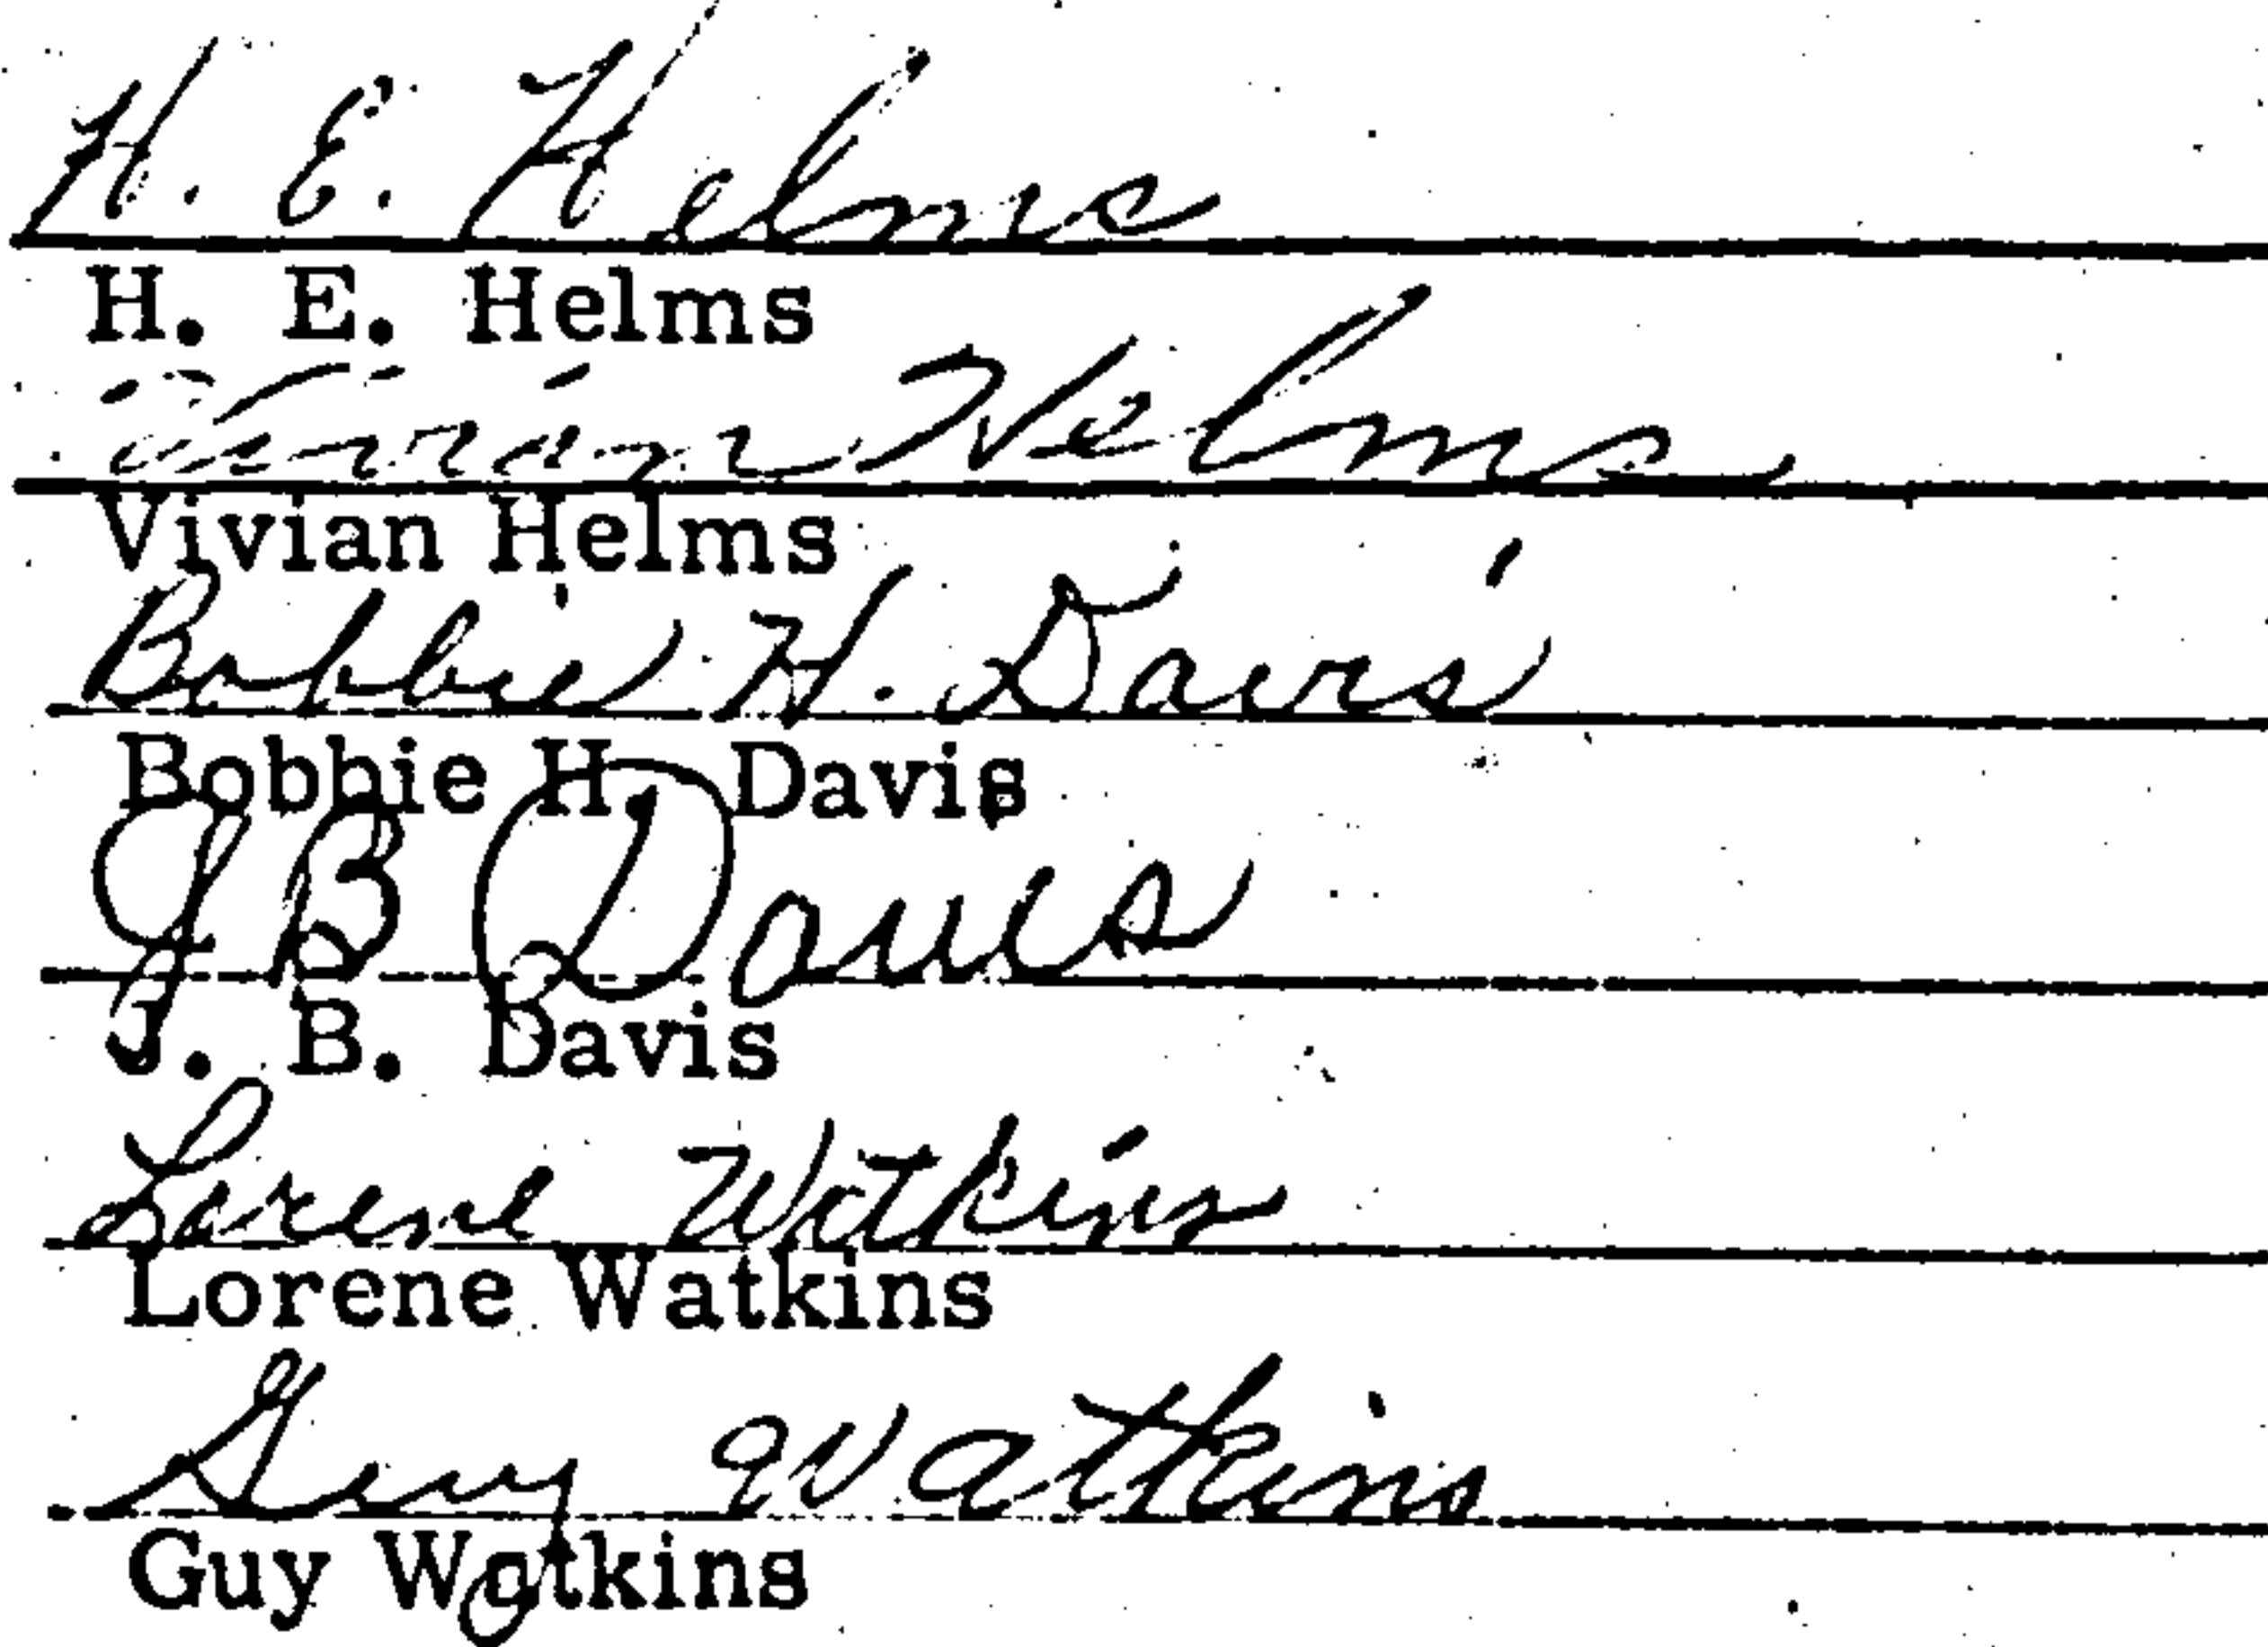 H. E. Helms
H. E. Helms
Vivian Helms
Vivian Helms
Bobbie H. Davis
Bobbie H. Davis
J B Davis
J. B. Davis
Lorene Watkins
Lorene Watkins
Guy Watkins
Guy Watkins